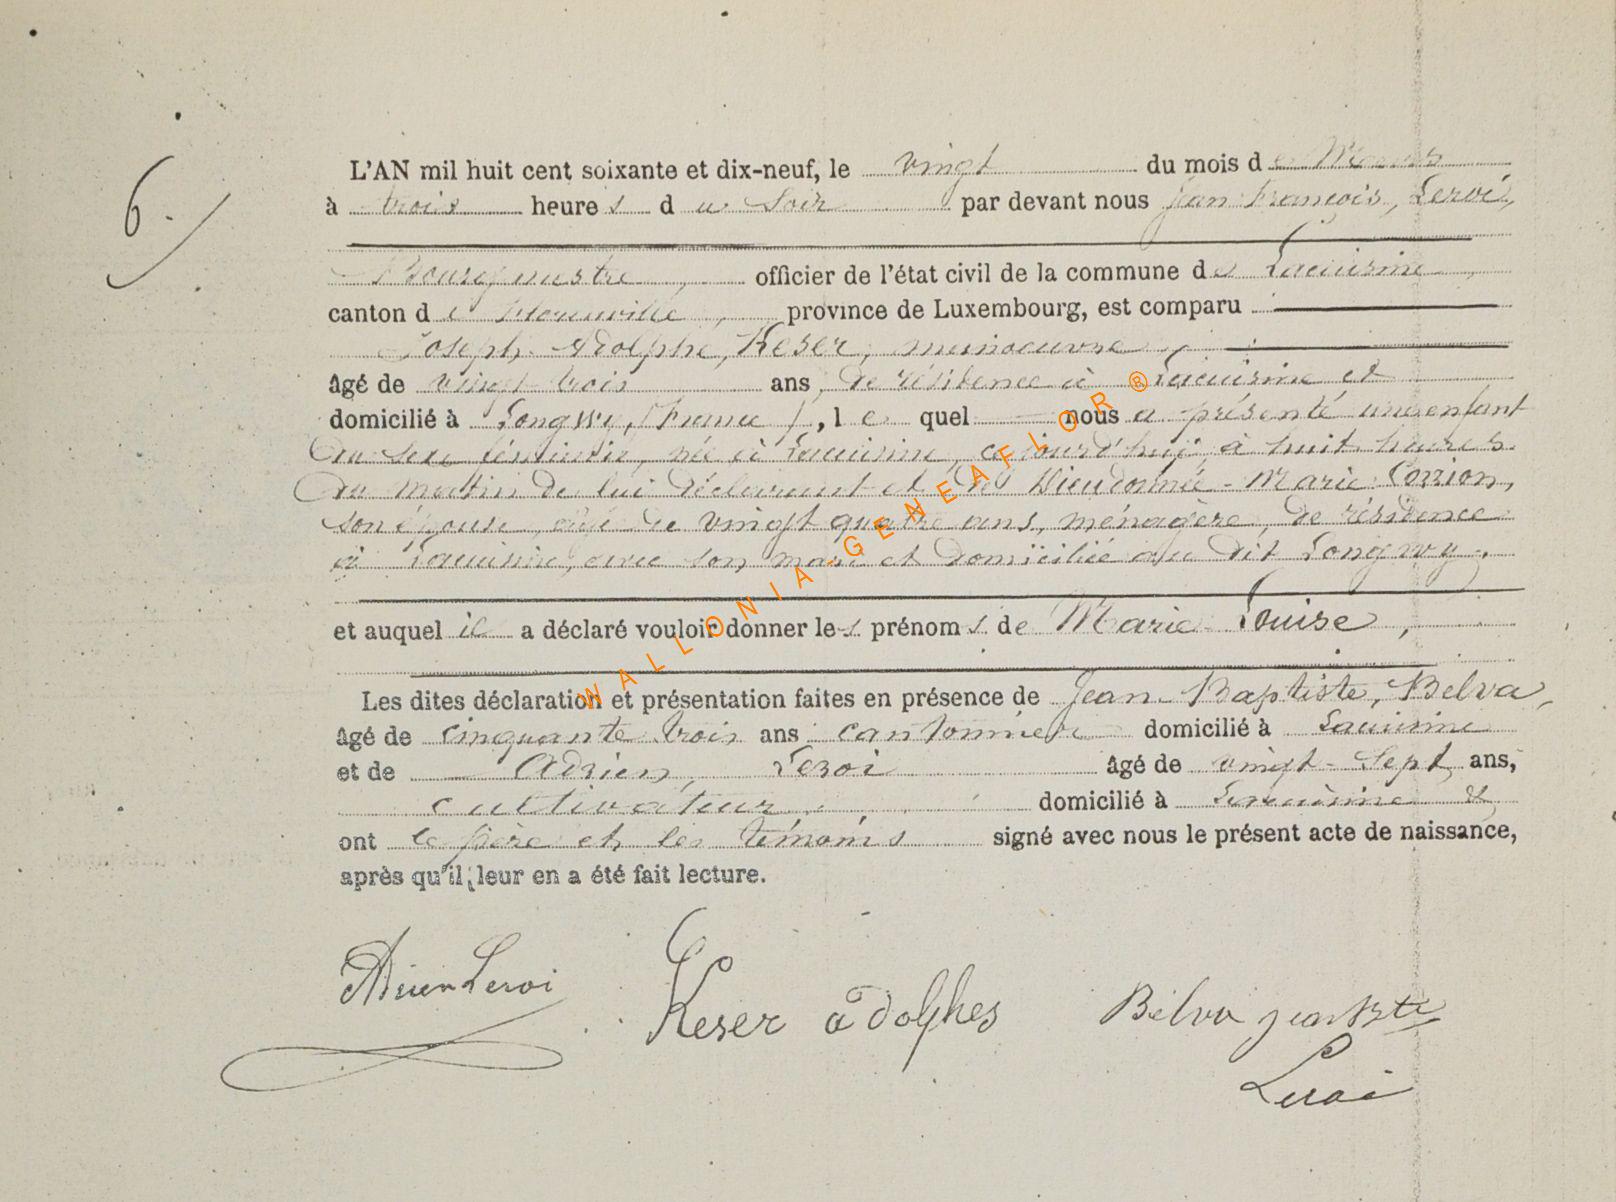 6.
L'AN mil huit cent soixante et dix-neuf, le vingt du mois de Mars
à trois heures du soir par devant nous Jean François, Leroi,
Bourgmestre, officier de l'état civil de la commune de Lacuisine
canton de Florenville, province de Luxembourg, est comparu
Joseph Adolphe, Keser, manoeuvre,
âgé de vingt trois ans, de résidence à Lacuisine et
domicilié à Longwy, (France), lequel nous a présenté une enfant
du sexe féminin, née à Lacuisine, ce jourd'hui à huit heures
du matin de lui déclarant et de Dieudonnée-Marie Corrion,
son épouse, âgée de vingt quatre ans, ménagère, de résidence
à Lacuisine, avec son mari et domiciliée au dit Longwy.
et auquel il a déclaré vouloir donner les prénoms de Marie Louise,
Les dites déclaration et présentation faites en présence de Jean Baptiste, Belva,
âgé de cinquante trois ans cantonnier domicilié à Lacuisine
et de Adrien, Leroi âgé de vingt-sept ans,
cultivateur domicilié à Lacuisine &
ont le père et les témoins signé avec nous le présent acte de naissance,
après qu'il leur en a été fait lecture.
Adrien Leroi
Keser adolphes
Belva jean Bte
Leroi
WALLONIA-GENEAFLOR®